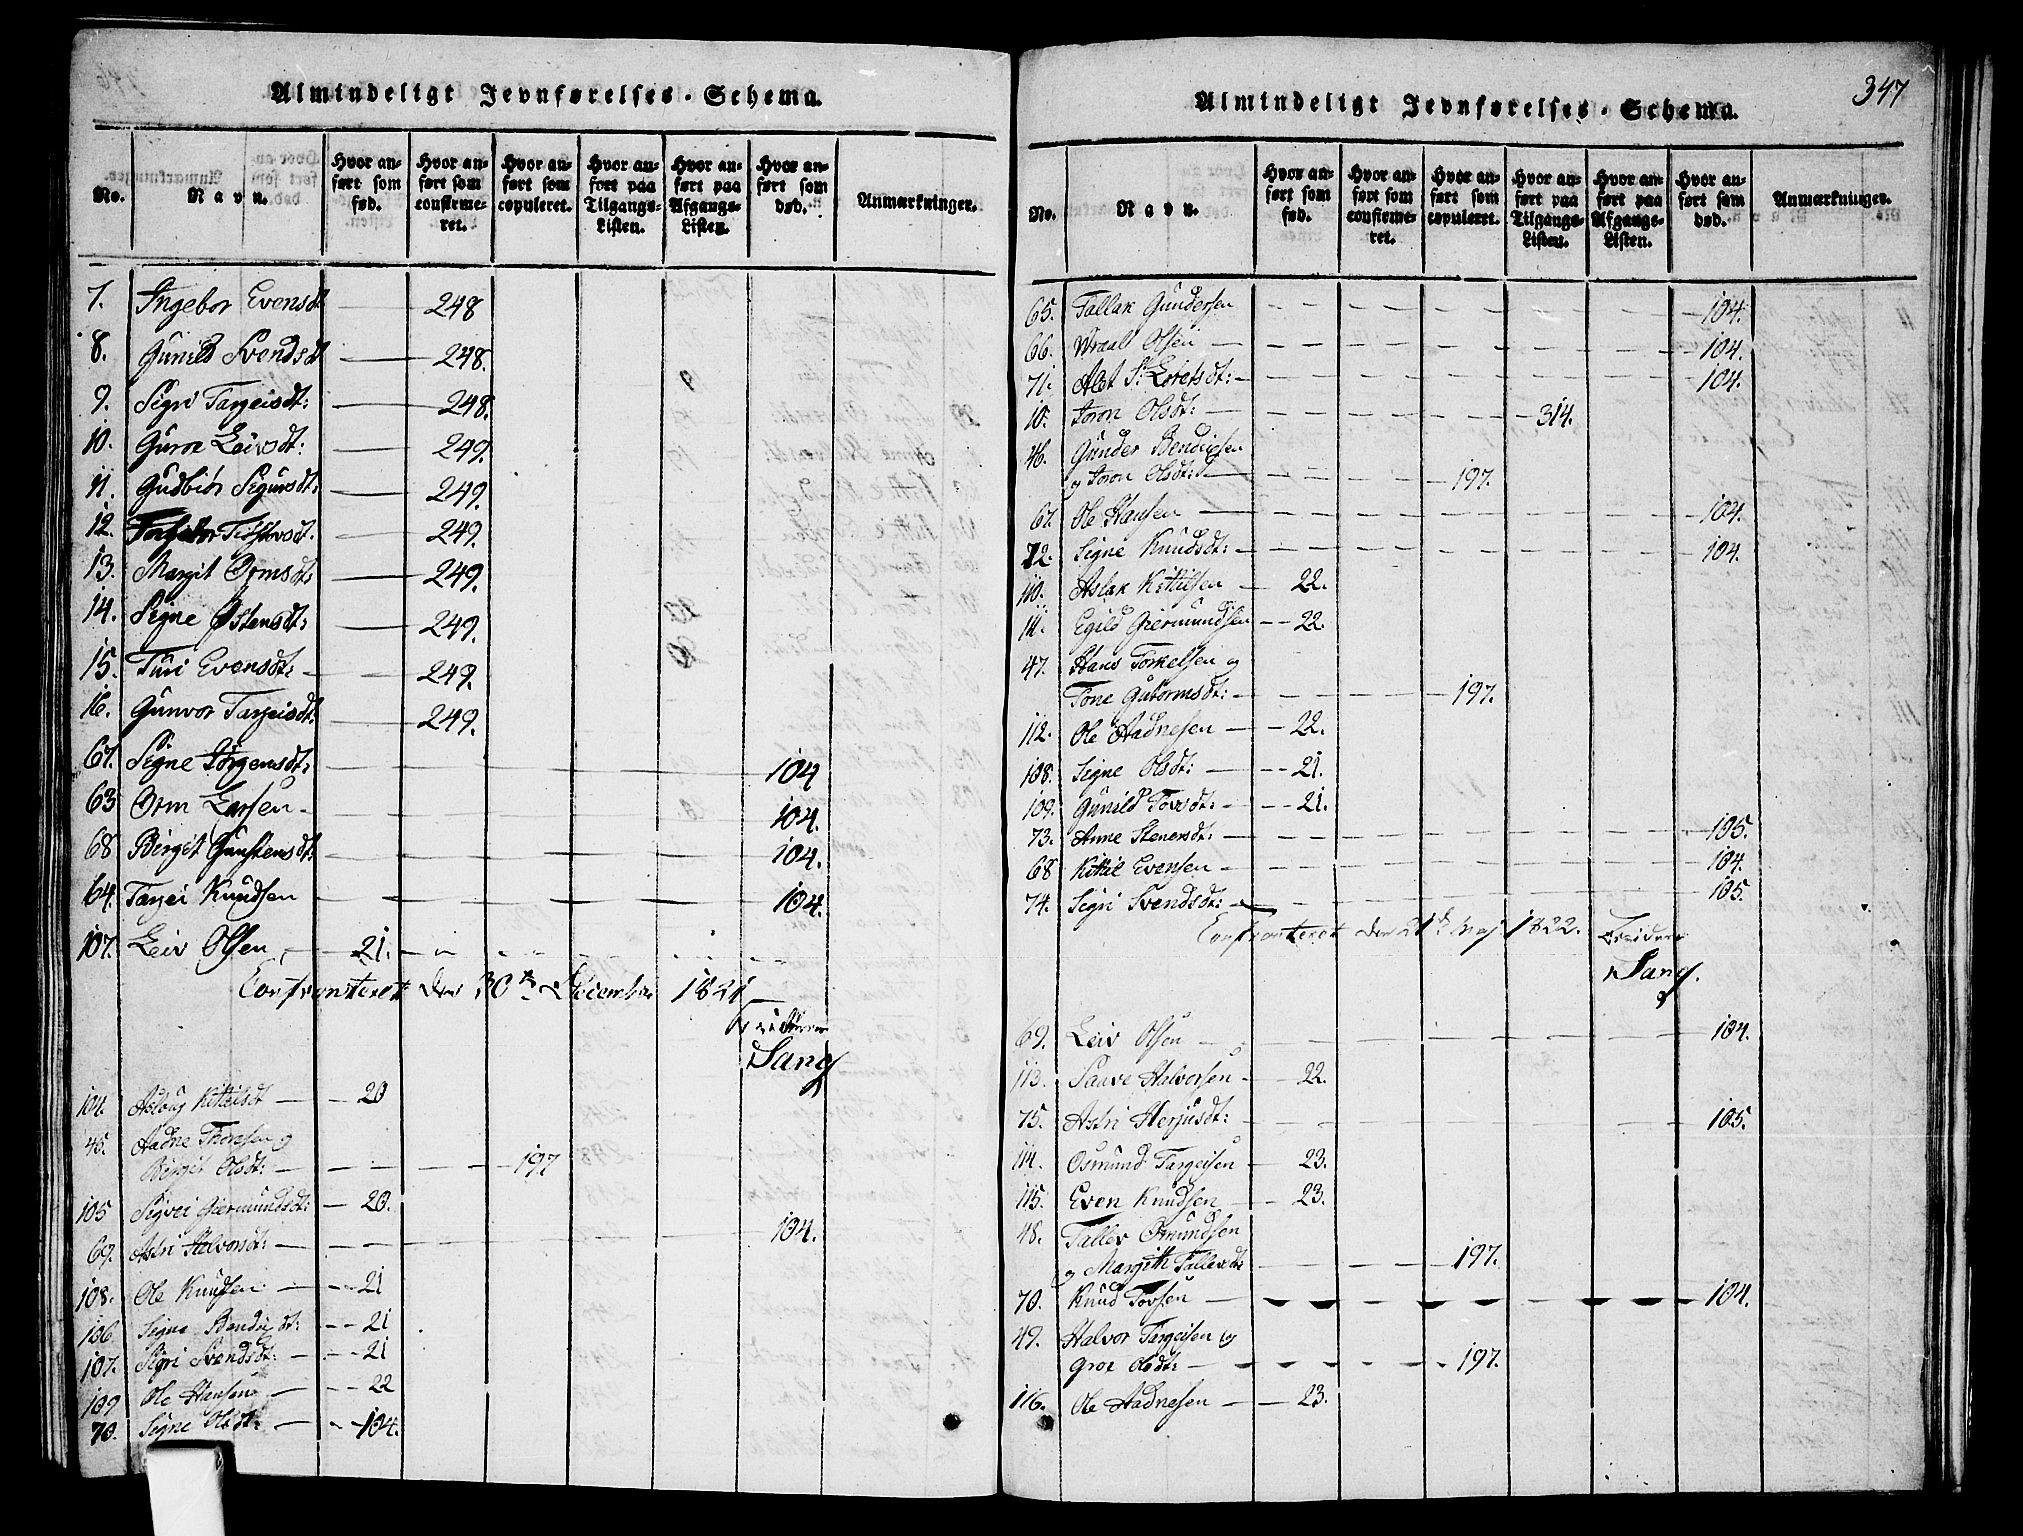 Almindeligt Jevnførelses-Schema.
No. | Navn. | Hvor anført som fød. | Hvor anført som confirmeret. | Hvor anført som copuleret. | Hvor anført paa Tilgangs-Listen. | Hvor anført paa Afgangs-Listen. | Hvor anført som død. | Anmærkninger.
7. Ingebor Evensdt — 248
8. Gunild Svendsdt — 248.
9. Sigri Targeisdt: — 248.
10. Guroe Leivsdt: — 249.
11. Gudbiør Sigursdt: — 249.
12. — 249.
13. Margit Ormsdt: — 249.
14. Signe Østensdt: — 249.
15. Turi Evensdt: — 249.
16. Gunvor Targeisdt: — 249.
67. Signe Jørgensdt: — 104
63 Orm Larsen — 104.
68 Birgit Gunstensdt: — 104.
64. Targei Knudsen — 104.
107. Leiv Olsen — 21.
Confronteret den 30te December 1821
Sang
104. Asloug Kittilsdt — 20
45. Aadne Thorsen og
Birgit Olsdt: — 197
105 Sigvei Giermundsdt: — 20.
69. Astri Halvorsdt: — 104.
108. Ole Knudsen — 21
106 Signe Bendixdt: — 21
107. Sigri Svendsdt: — 21
109 Ole Hansen — 22
70. Signe Olsdt: — 104.
347
Almindeligt Jevnførelses-Schema.
No. | Navn. | Hvor anført som fød. | Hvor anført som confirmeret. | Hvor anført som copuleret. | Hvor anført paa Tilgangs-Listen. | Hvor anført paa Afgangs-Listen. | Hvor anført som død. | Anmærkninger.
65. Tallak Gundersen — 104.
66. Wraal Olsen — 104.
71. — 104.
10. Joron Olsdt: — 314.
46. Gunder Bendixsen
og Joron Olsdt: — 197.
67. Ole Hansen — 104.
72. Signe Knudsdt: — 104.
110. Aslak Kittilsen — 22.
111. Egild Giermundsen — 22.
47. Hans Torkelsen og
Tone Gutormsdt: — 197.
112. Ole Aadnesen — 22.
108. Signe Olsdt: — 21.
109. Gunild Tovsdt: — 21.
73. Anne Stenersdt: — 105.
68 Kittil Evensen — 104.
74. Sigri Svendsdt: — 105.
Confronteret den 21te Maj 1822.
Sang.
69. Leiv Olsen — 104.
113. Saave Halvorsen — 22.
75. Astri Herjusdt: — 105.
114. Osmund Targeisen — 23.
115. Even Knudsen — 23.
48. Tallev Osmundsen
og Margith Tallevsdt: — 197.
70. Knud Tovsen — 104.
49. Halvor Targeisen og
Groe Olsdt: — 197.
116. Ole Aadnesen — 23.